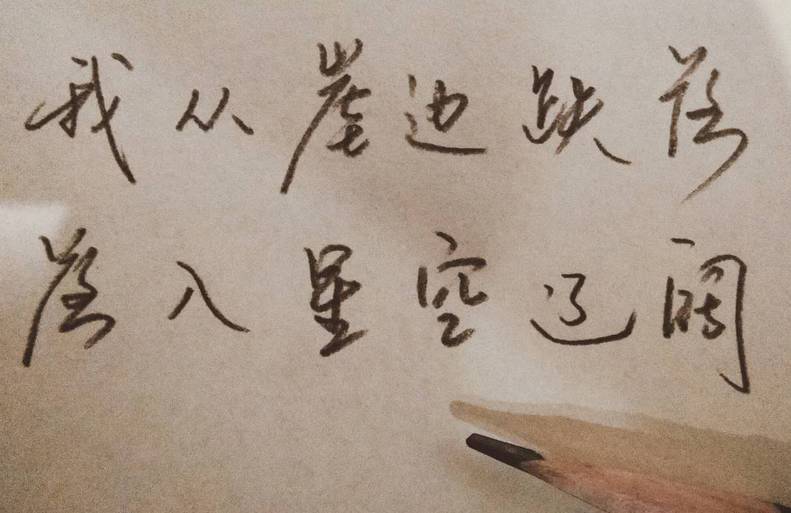 我从崖边跌落
落入星空辽阔